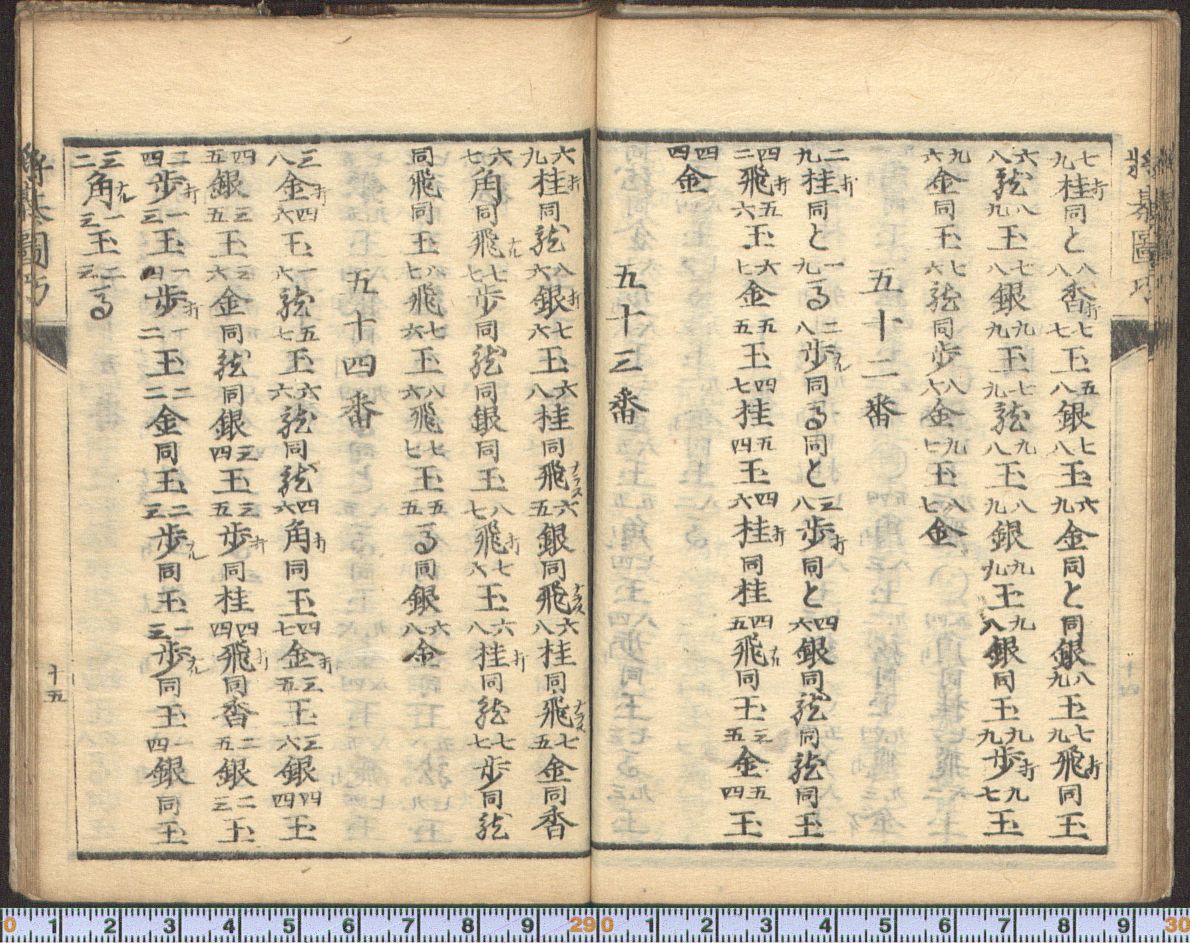 將棊圖巧
七九桂打同と八八香打七七玉五八銀七八玉六九金同と同銀八九玉七九飛打同玉
六八龍八九玉七八銀九九玉七九龍九八玉八九銀九九玉九八銀同玉九九歩打九七玉
九六金同玉七六龍同歩八六金九七玉八七金
五十二番
二九桂打同と一九馬二八歩ナル同馬同と三八歩打同と四六銀同龍同龍同玉
四二飛打五六玉六七金五五玉四七桂五四玉四六桂打同桂四五飛ナル同玉三五金五四玉
四四金
五十三番
六九桂打同龍八六銀打七六玉六八桂同飛ナラス六五銀同飛ナラス六八桂同飛ナラス七五金同香
六七角打同飛ナル七七歩同龍同銀同玉八七飛打七六玉六八桂打同龍七七歩同龍
同飛同玉八七飛七六玉八六飛七七玉五五馬同銀六八金
五十四番
三八金打四六玉一六龍五七玉六六龍同龍四六角打同玉四七金打三五玉三六銀四四玉
四五銀三五玉三六金同龍同銀三四玉三五歩打同桂四四飛打同香二五銀二三玉
二四歩打一三玉一四歩打一二玉二二金同玉二三歩ナル同玉一三歩ナル同玉一四銀同玉
三二角ナル一三玉二三馬
將棊圖巧
十五